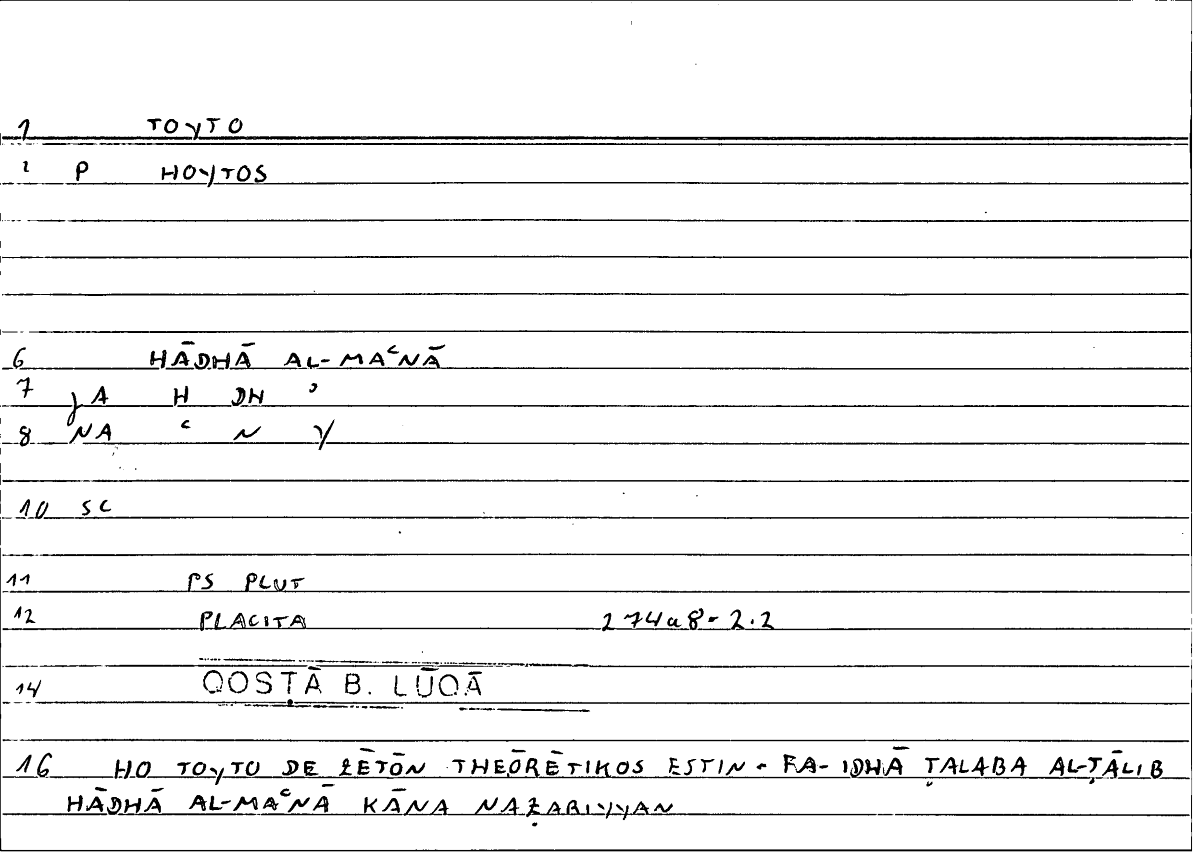 1 TOYTO
2 P HOYTOS
6 HĀDHĀ AL-MAʿNĀ
7 JA H DH ʾ
8 NA ʿ N Y
10 SC
11 PS PLUT
12 PLACITA 274a8-2.2
14 QOSṬĀ B. LŪQĀ
16 HO TOYTO DE ZĒTŌN THEŌRĒTIKOS ESTIN - FA-IDHĀ ṬALABA AL-ṬĀLIB
HĀDHĀ AL-MAʿNĀ KĀNA NAẒARIYYAN